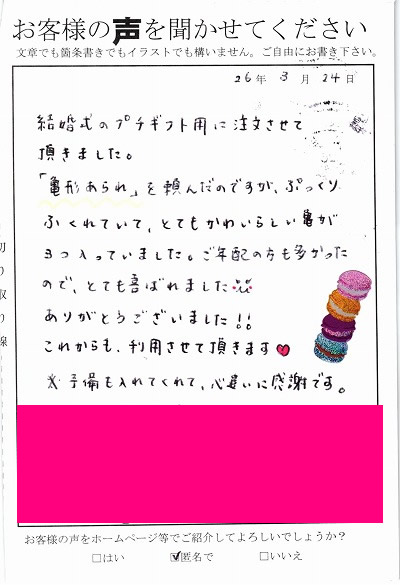 お客様の声を聞かせてください
文章でも箇条書きでもイラストでも構いません。ご自由にお書き下さい。
26年 3月 24日
結婚式のプチギフト用に注文させて
頂きました。
「亀形あられ」を頼んだのですが、ぷっくり
ふくれていて、とてもかわいらしい亀が
3つ入っていました。ご年配の方も多かった
ので、とても喜ばれました
ありがとうございました!!
これからも、利用させて頂きます
※予備も入れてくれて、心遣いに感謝です。
切り取り線
お客様の声をホームページ等でご紹介してよろしいでしょうか？
□はい ☑匿名で □いいえ